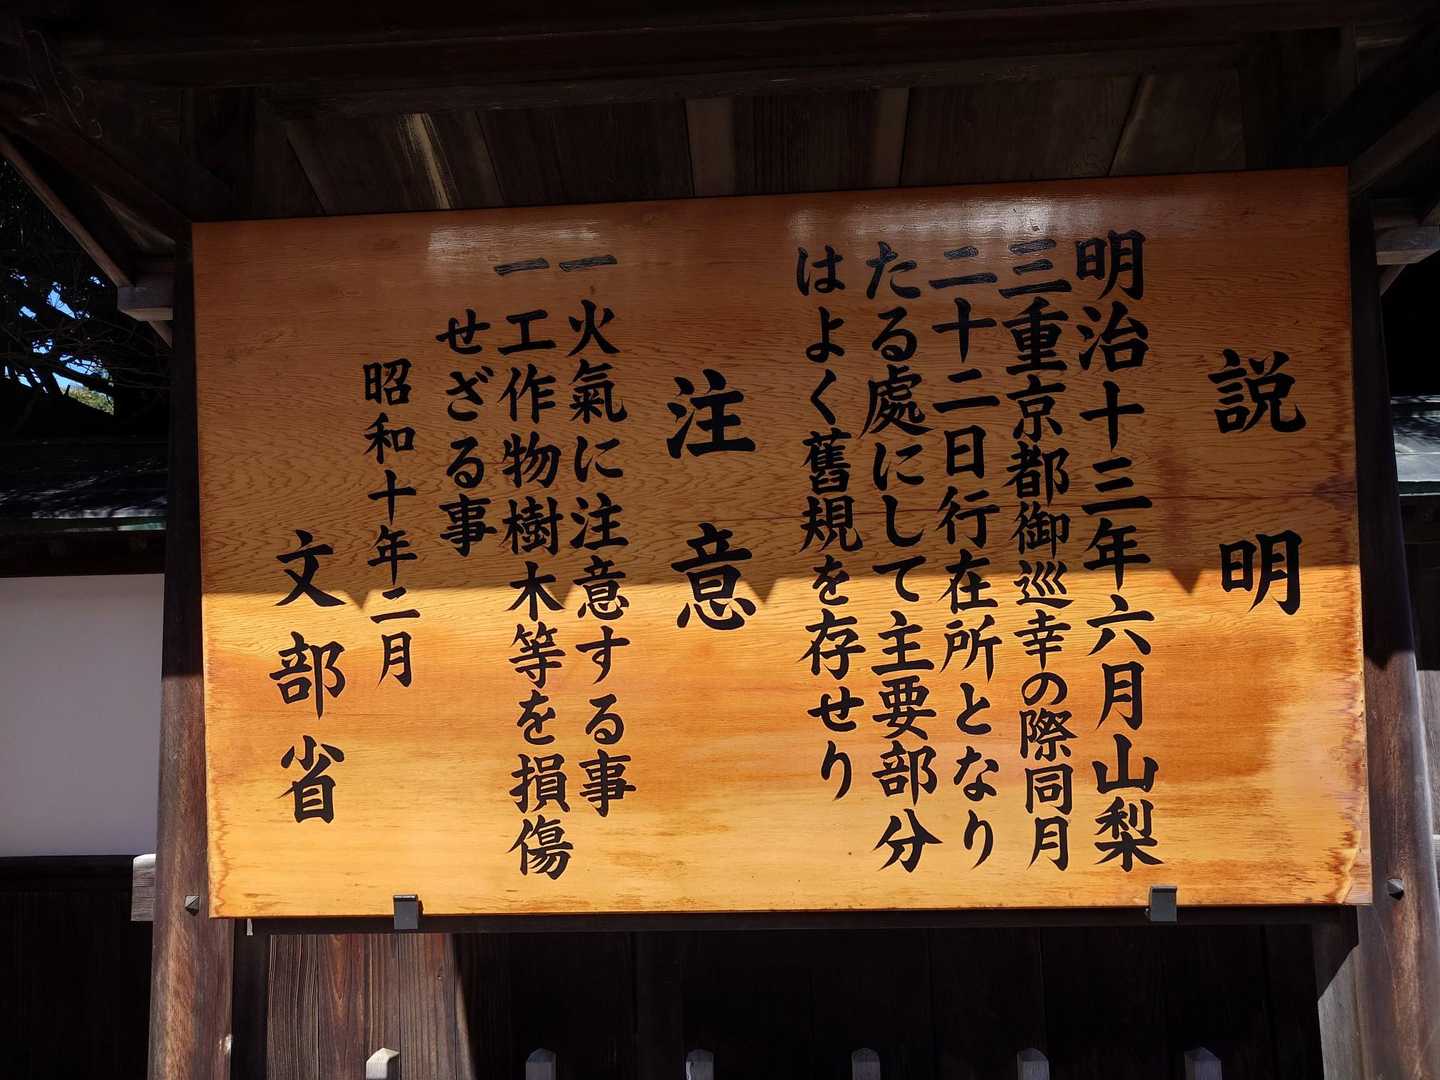 説明
明治十三年六月山梨
三重京都御巡幸の際同月
二十二日行在所となり
たる處にして主要部分
はよく舊規を存せり
注意
一 火氣に注意する事
一 工作物樹木等を損傷
せざる事
昭和十年二月
文部省